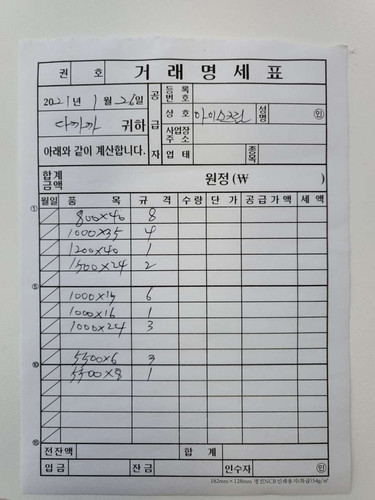 권 호 거 래 명 세 표
2021년 1월 26일
다까까 귀하
아래와 같이 계산합니다.
공급자
등록번호
상호 아이스크림 성명 ㊞
사업장주소
업태 종목
합계금액 원정(₩ )
월일 품목 규격 수량 단가 공급가액 세액
① 800×40 8
1000×35 4
1200×40 1
1500×24 2
⑤
1000×15 6
1000×16 1
1000×24 3
5500×6 3
⑩ 5500×8 1
⑮
전잔액 합계
입금 잔금 인수자 ㊞
182mm×128mm